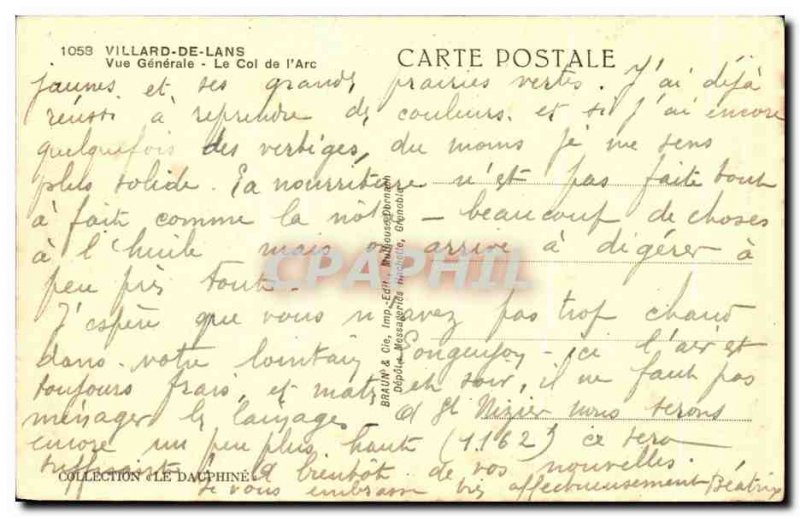 1058 VILLARD-DE-LANS
Vue Générale - Le Col de l'Arc
CARTE POSTALE
jaunes et ses grandes prairies vertes. J'ai déjà
réussi à reprendre des couleurs. et si j'ai encore
quelquefois des vertiges, du moins je me sens
plus solide. La nourriture n'est pas faite tout
à fait comme la nôtre - beaucoup de choses
à l'huile mais on arrive à digérer à
peu près tout.
J'espère que vous n'avez pas trop chaud
dans votre lointain - ici l'air est
toujours frais, et matin et soir, il ne faut pas
ménager les lainages. A St Nizier nous serons
encore un peu plus haut (1.162) ce sera
suffisant. A bientôt de vos nouvelles.
Je vous embrasse très affectueusement Béatrix
COLLECTION "LE DAUPHINÉ"
BRAUN & Cie, Imp.-Edit., Mulhouse-Dornach
Dépôt: Messageries Hachette, Grenoble
CPAPHIL